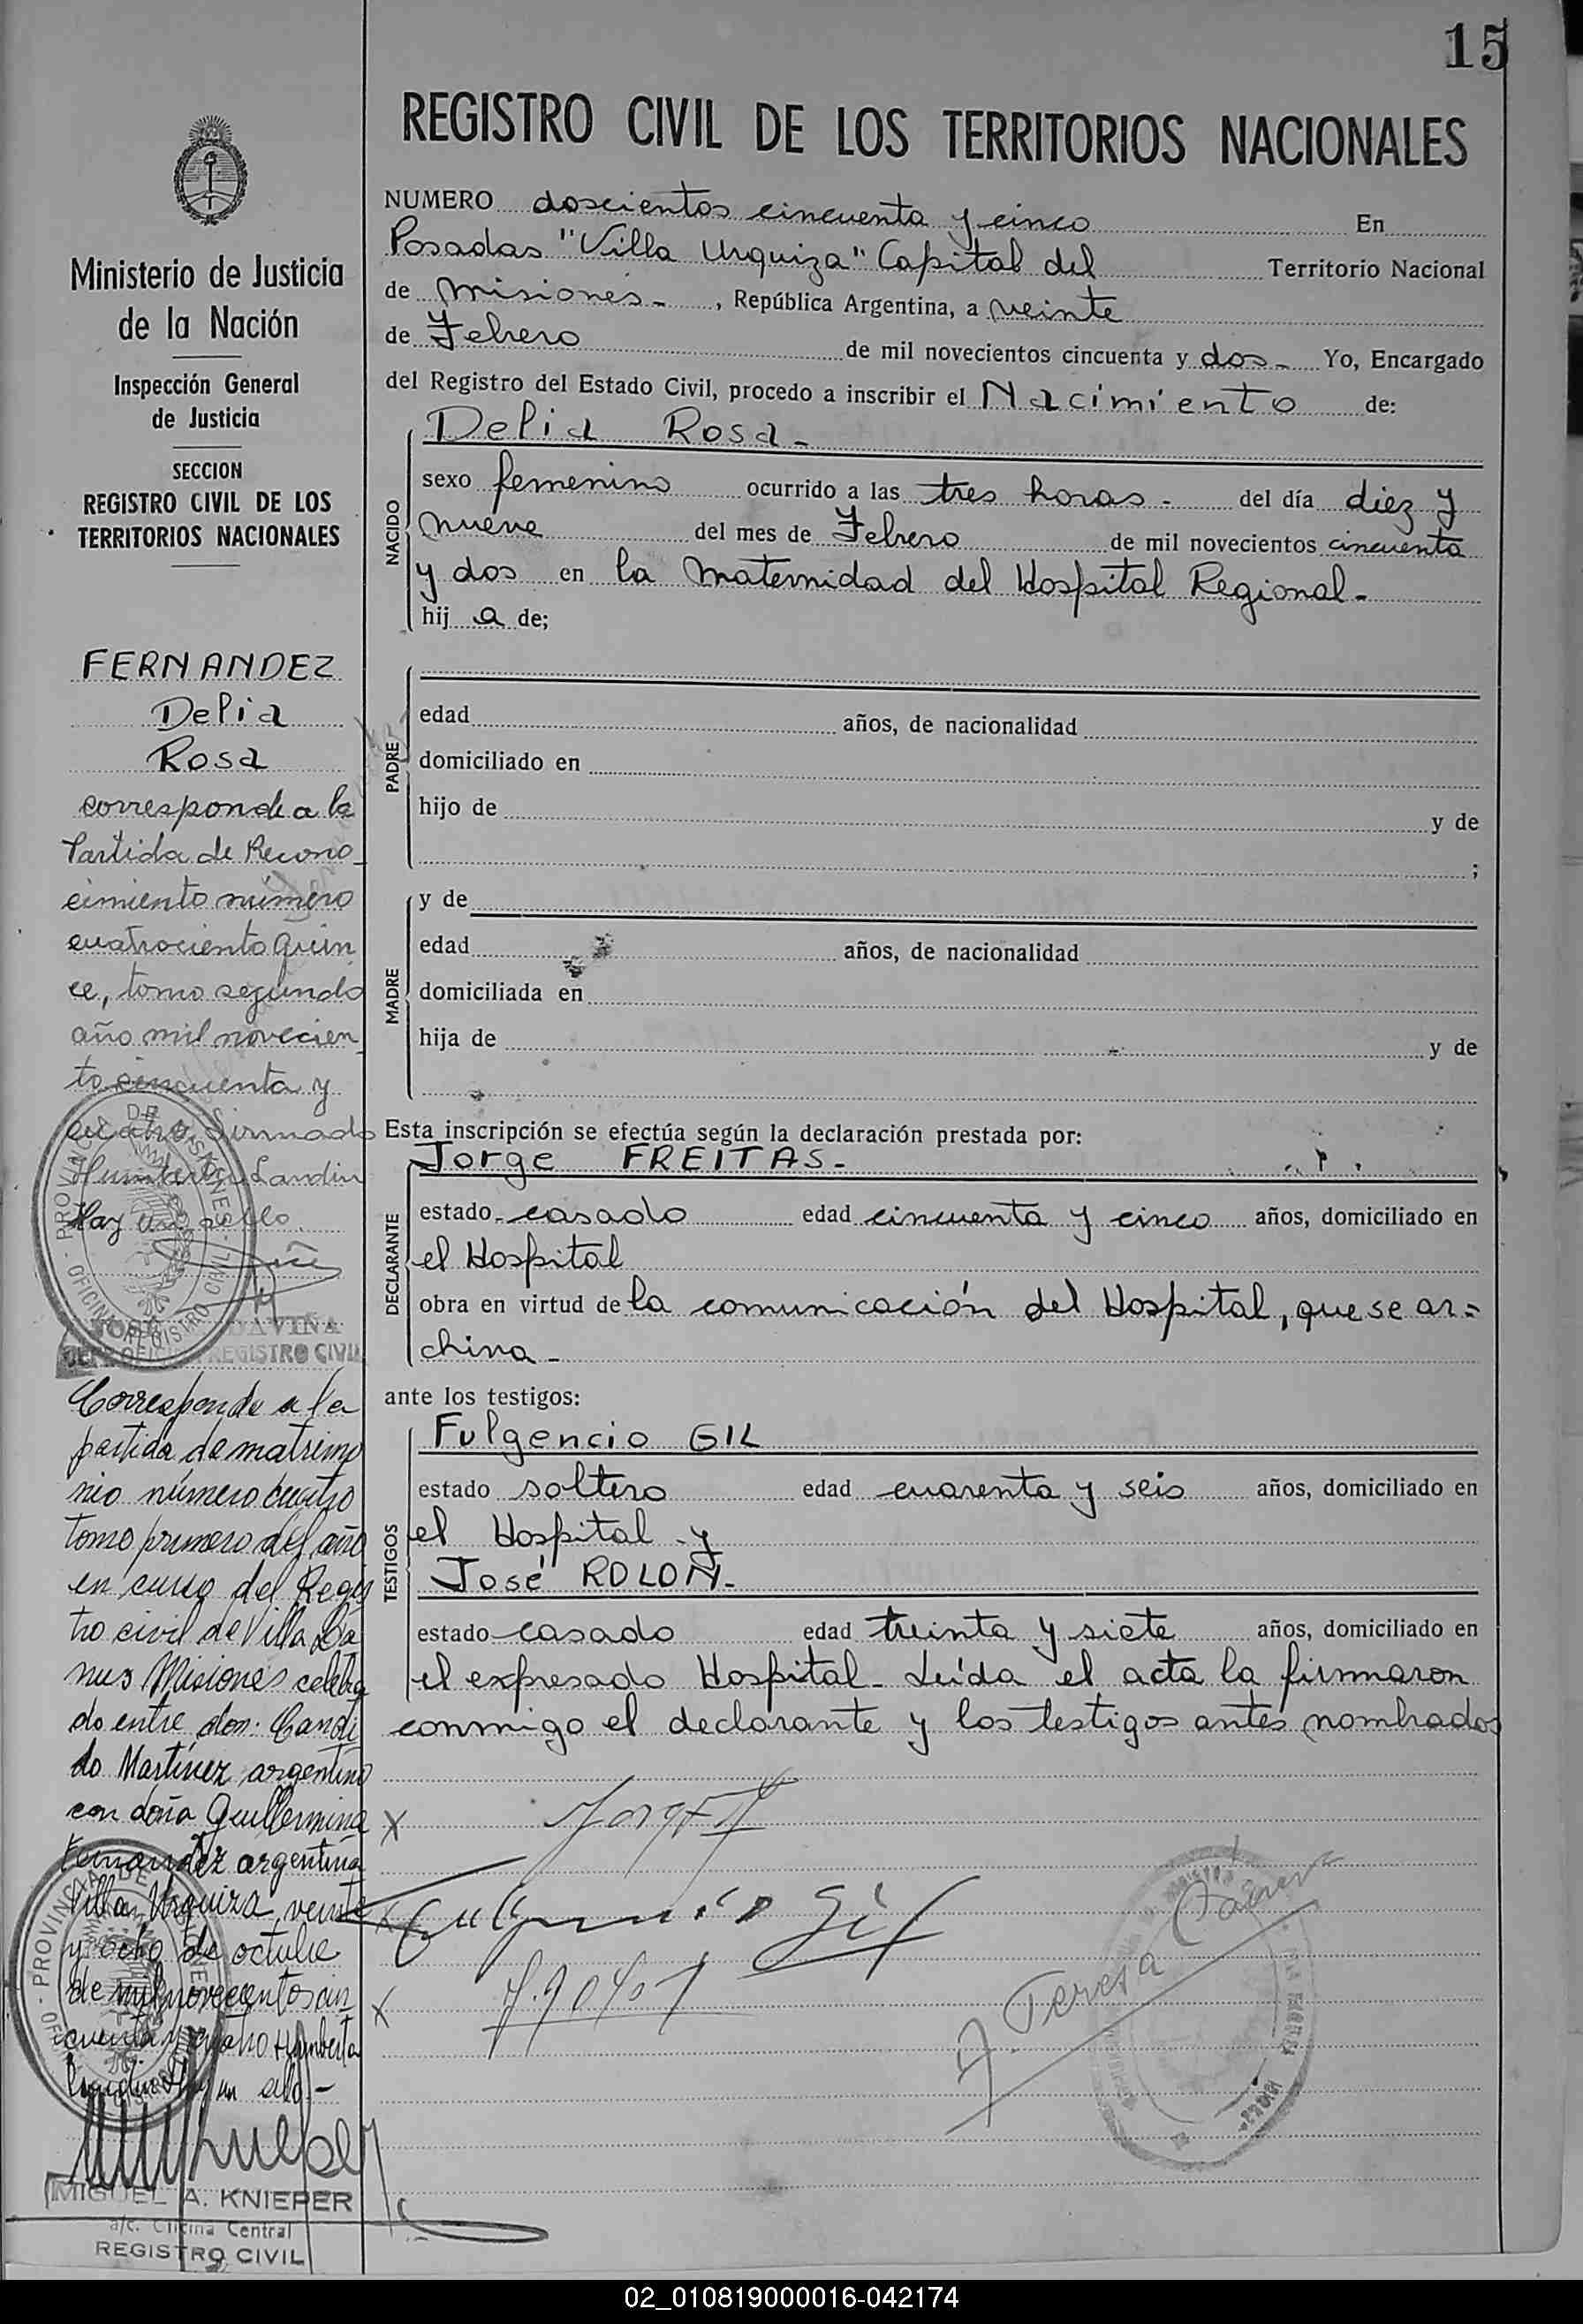 15
REGISTRO CIVIL DE LOS TERRITORIOS NACIONALES
NUMERO doscientos cincuenta y cinco En
Posadas "Villa Urquiza" Capital del Territorio Nacional
de Misiones- , República Argentina, a veinte
de Febrero de mil novecientos cincuenta y dos- Yo, Encargado
del Registro del Estado Civil, procedo a inscribir el Nacimiento de:
NACIDO
Delia Rosa-
sexo femenino ocurrido a las tres horas- del día diez y
nueve del mes de Febrero de mil novecientos cincuenta
y dos en la Maternidad del Hospital Regional-
hij a de;
PADRE
edad años, de nacionalidad
domiciliado en
hijo de y de
;
MADRE
y de
edad años, de nacionalidad
domiciliada en
hija de y de
Esta inscripción se efectúa según la declaración prestada por:
DECLARANTE
Jorge FREITAS-
estado casado edad cincuenta y cinco años, domiciliado en
el Hospital
obra en virtud de la comunicación del Hospital, que se ar=
chiva-
ante los testigos:
TESTIGOS
Fulgencio GIL
estado soltero edad cuarenta y seis años, domiciliado en
el Hospital y
José ROLON-
estado casado edad treinta y siete años, domiciliado en
el expresado Hospital- Leída el acta la firmaron
conmigo el declarante y los testigos antes nombrados
X
Fulgencio Gil
X
Teresa
Ministerio de Justicia
de la Nación
Inspección General
de Justicia
SECCION
REGISTRO CIVIL DE LOS
TERRITORIOS NACIONALES
FERNANDEZ
Delia
Rosa
corresponde a la
Partida de Recono
cimiento número
cuatrociento quin
ce, tomo segundo
año mil novecien
to cincuenta y
cuatro, firmado
Humberto Landin
Hay un sello
PROVINCIA DE MISIONES
OFICINA REGISTRO CIVIL
JOSE DAVIÑA
JEFE OFICINA REGISTRO CIVIL
Corresponde a la
partida de matrimo
nio número cuatro
tomo primero del año
en curso del Regis
tro civil de Villa La
nus Misiones celebra
do entre don: Candi
do Martínez argentino
con doña Guillermina
Fernandez argentina
Villa Urquiza, veinte
y ocho de octubre
de mil novecientos cin
cuenta y cuatro Humberto
Landin Hay un sello-
PROVINCIA DE
MIGUEL A. KNIEPER
a/c. Oficina Central
REGISTRO CIVIL
02_010819000016-042174